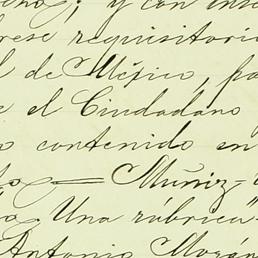 ; y con
requisitoria
l de México, pa
e el Ciudadano
o contenido en
Muñiz-
Una rúbrica"
Antonio Morán